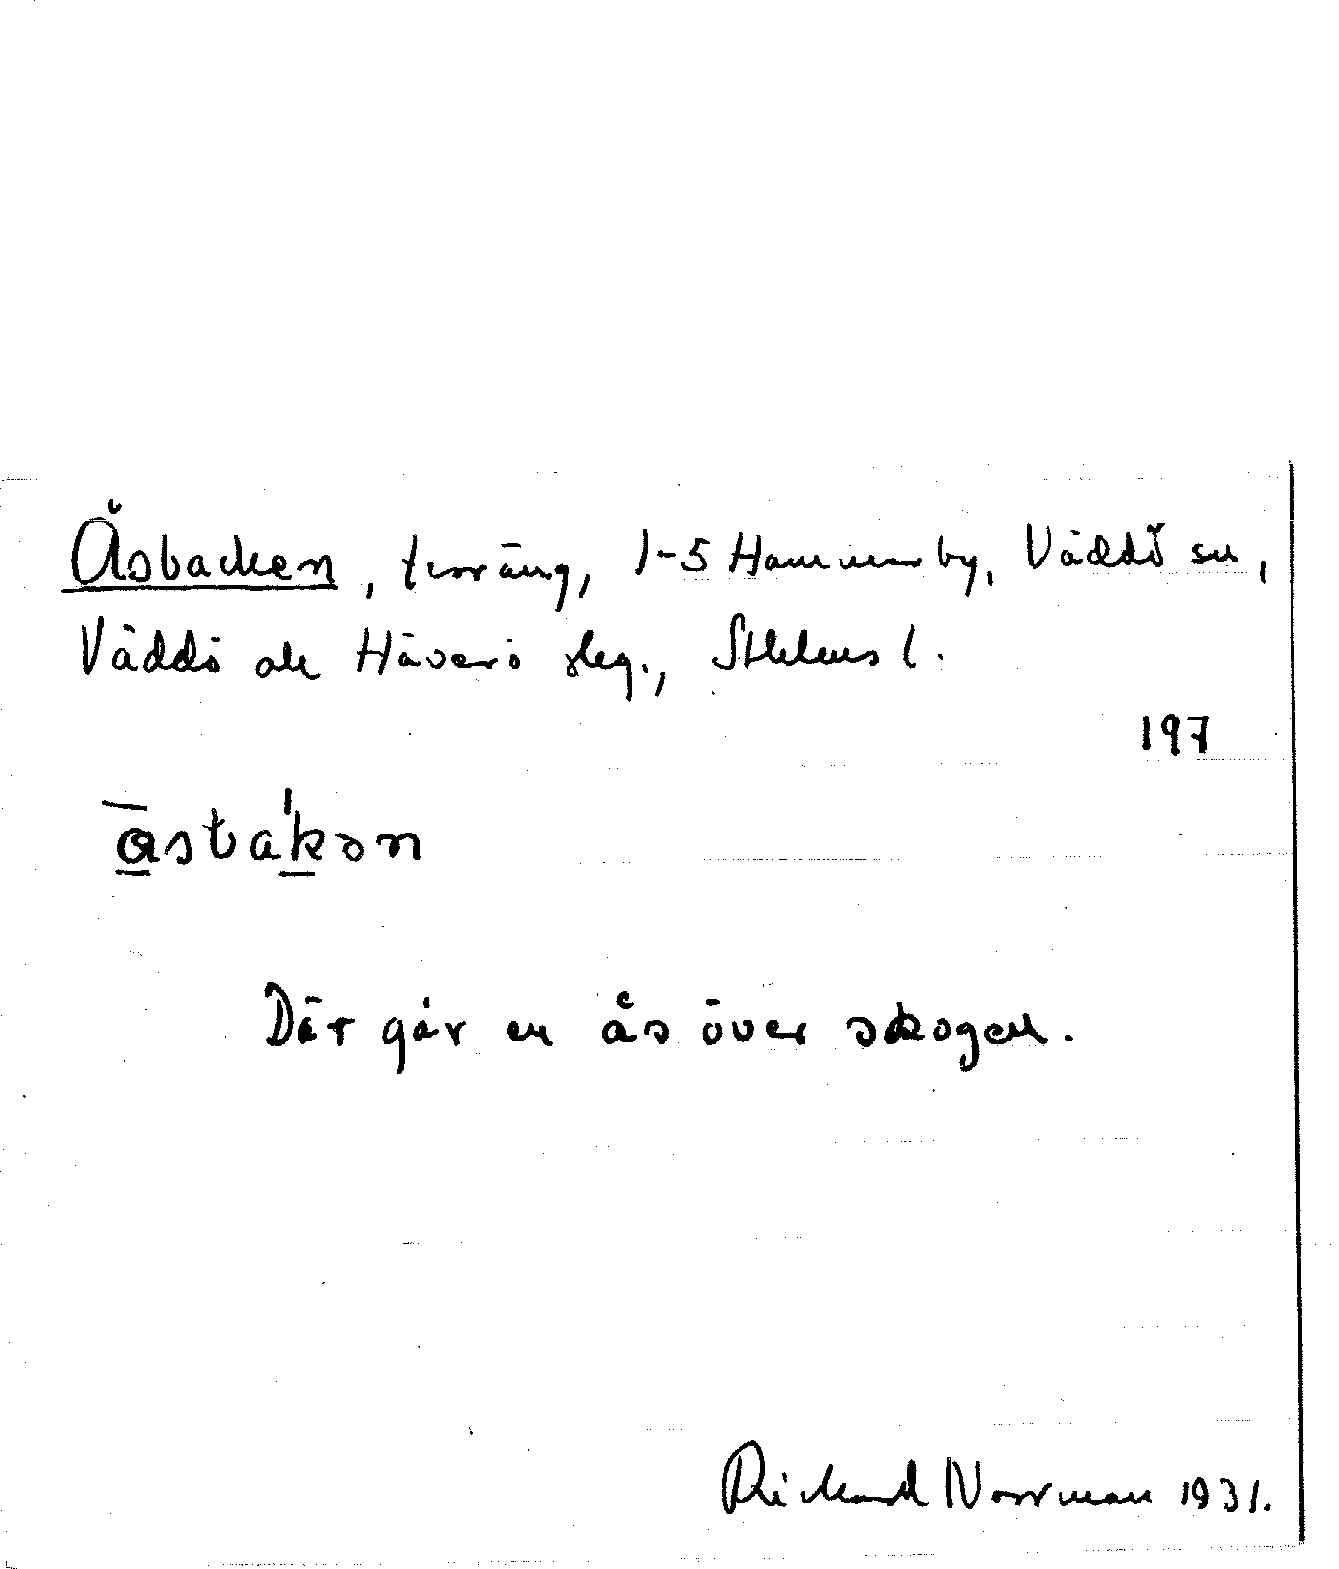 Åsbacken, terräng, 1-5 Hammerby, Väddö sn,
Väddö ok Häverö skg., Sthlms l.
197
Där går en ås över skogen.
Rickard Norrman 1931.